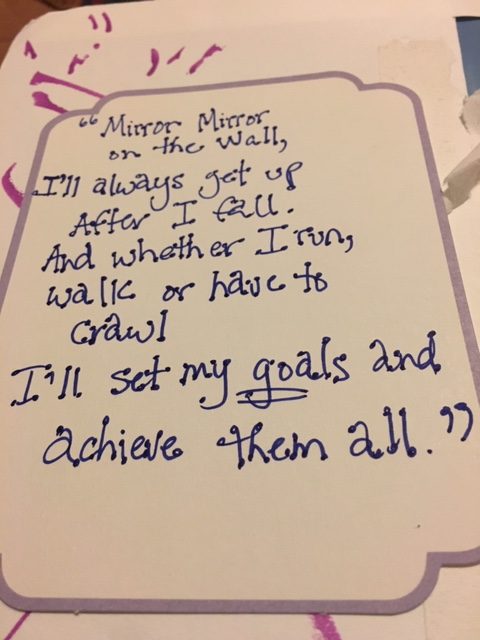 “Mirror Mirror
on the Wall,
I'll always get up
After I fall.
And whether I run,
walk or have to
crawl
I'll set my goals and
achieve them all.”